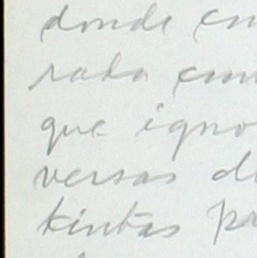 donde en
rada con
que igno
versas di
tintas pa